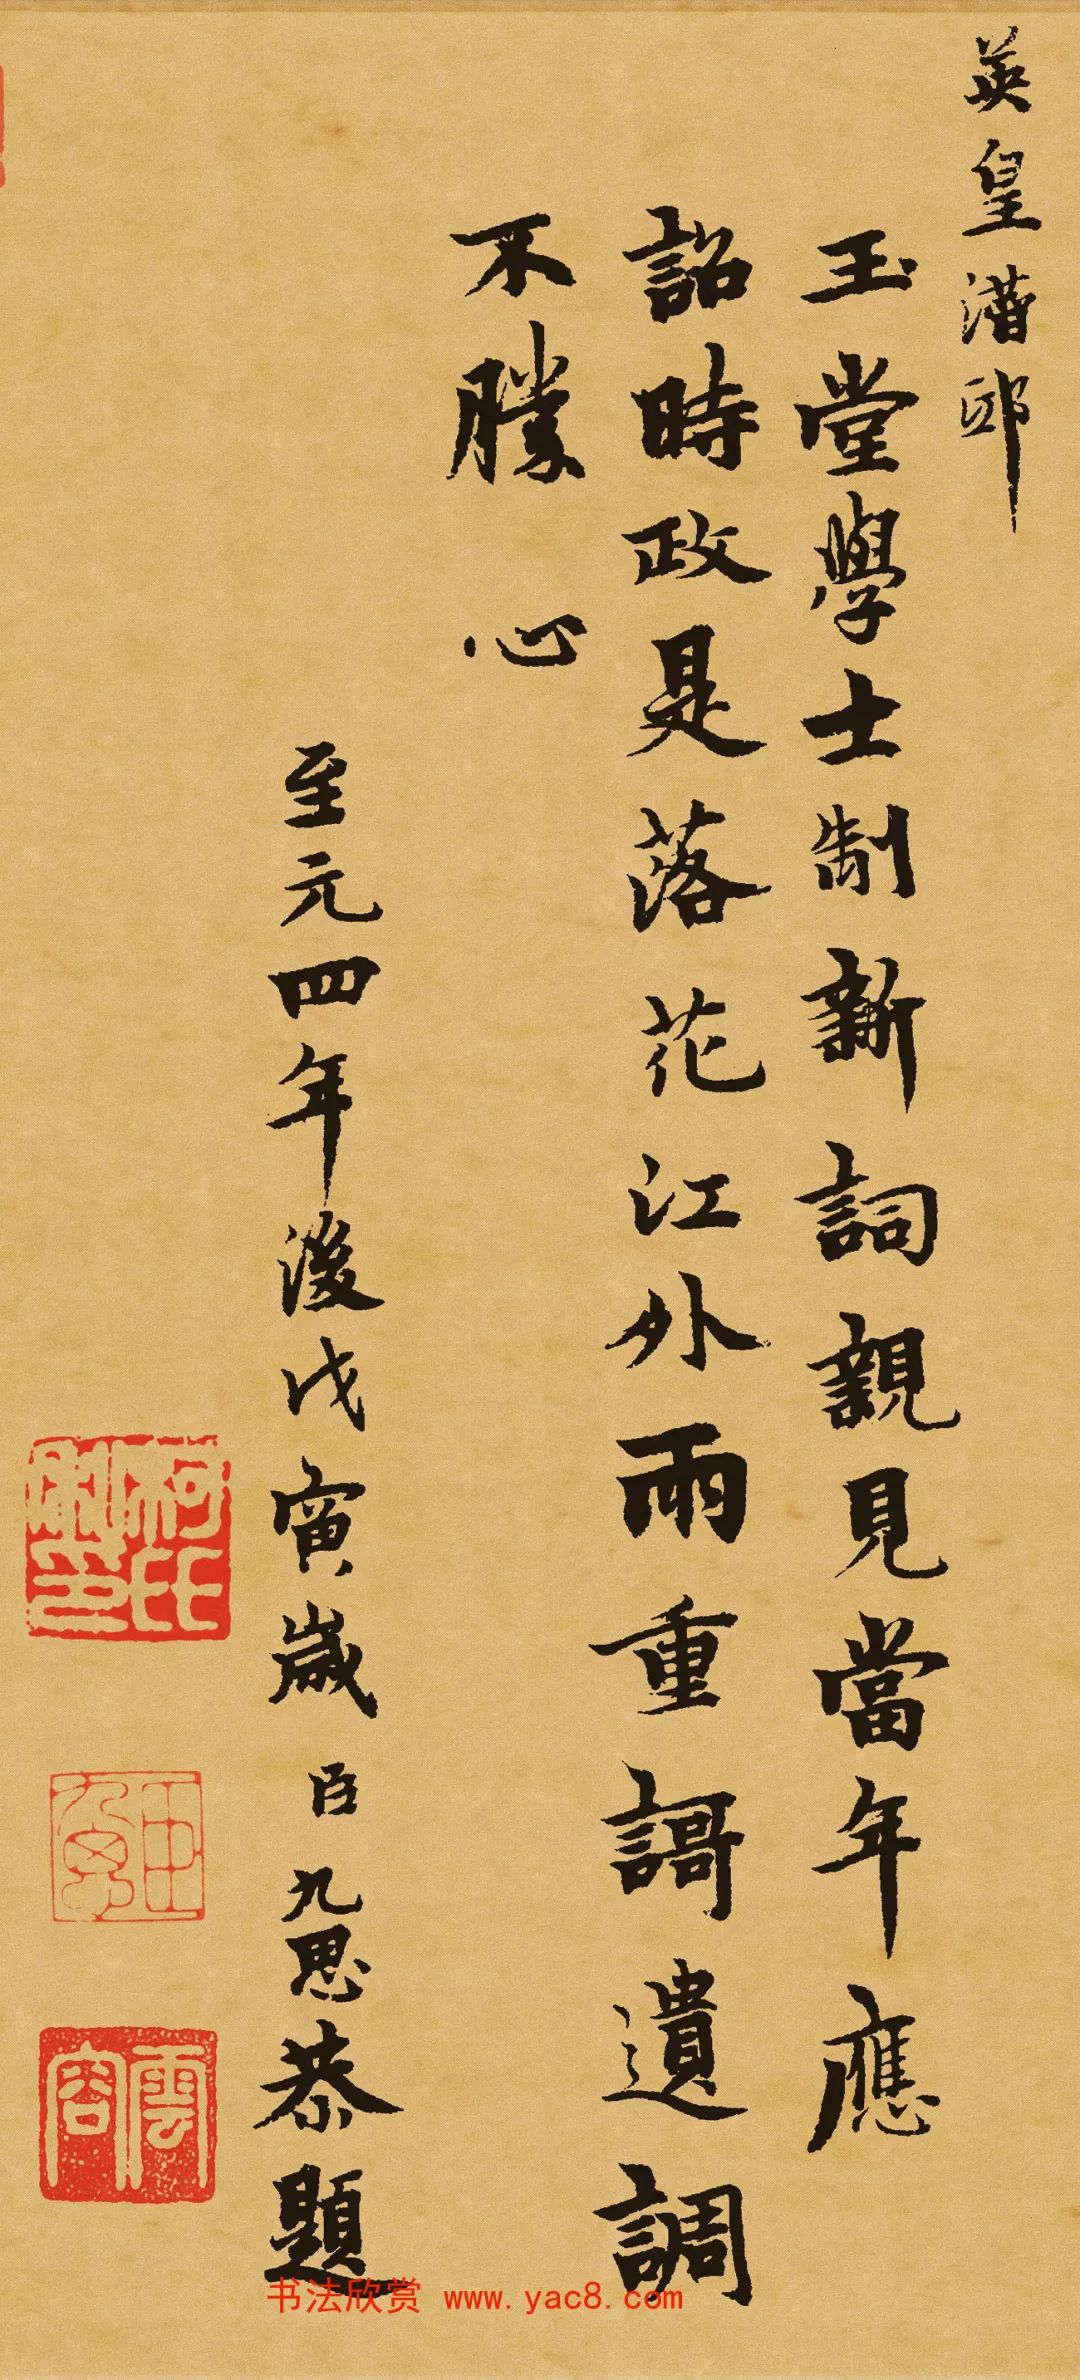 英皇潛邸
玉堂學士制新詞親見當年應
詔時政是落花江外雨重謌遺調
不勝 心
至元四年後戊寅歲臣九思恭題
雲容
书法欣赏 www.yac8.com